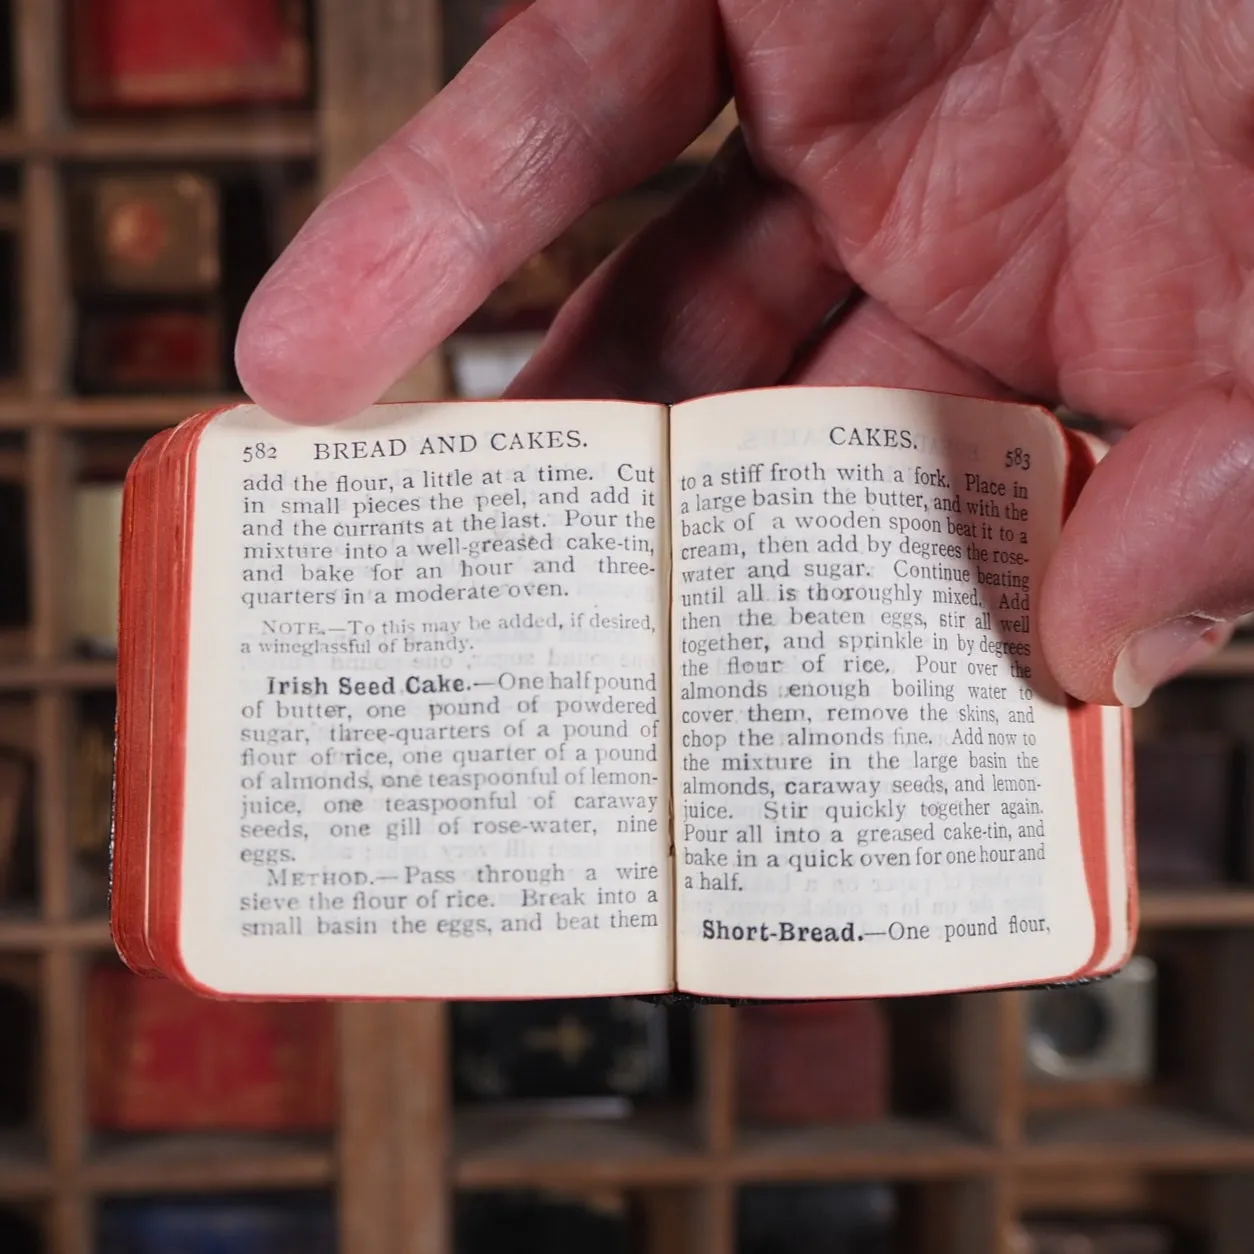 582 BREAD AND CAKES.
add the flour, a little at a time. Cut
in small pieces the peel, and add it
and the currants at the last. Pour the
mixture into a well-greased cake-tin,
and bake for an hour and three-
quarters in a moderate oven.
NOTE.—To this may be added, if desired,
a wineglassful of brandy.
Irish Seed Cake.—One half pound
of butter, one pound of powdered
sugar, three-quarters of a pound of
flour of rice, one quarter of a pound
of almonds, one teaspoonful of lemon-
juice, one teaspoonful of caraway
seeds, one gill of rose-water, nine
eggs.
METHOD.—Pass through a wire
sieve the flour of rice. Break into a
small basin the eggs, and beat them
CAKES. 583
to a stiff froth with a fork. Place in
a large basin the butter, and with the
back of a wooden spoon beat it to a
cream, then add by degrees the rose-
water and sugar. Continue beating
until all is thoroughly mixed. Add
then the beaten eggs, stir all well
together, and sprinkle in by degrees
the flour of rice. Pour over the
almonds enough boiling water to
cover them, remove the skins, and
chop the almonds fine. Add now to
the mixture in the large basin the
almonds, caraway seeds, and lemon-
juice. Stir quickly together again.
Pour all into a greased cake-tin, and
bake in a quick oven for one hour and
a half.
Short-Bread.—One pound flour,